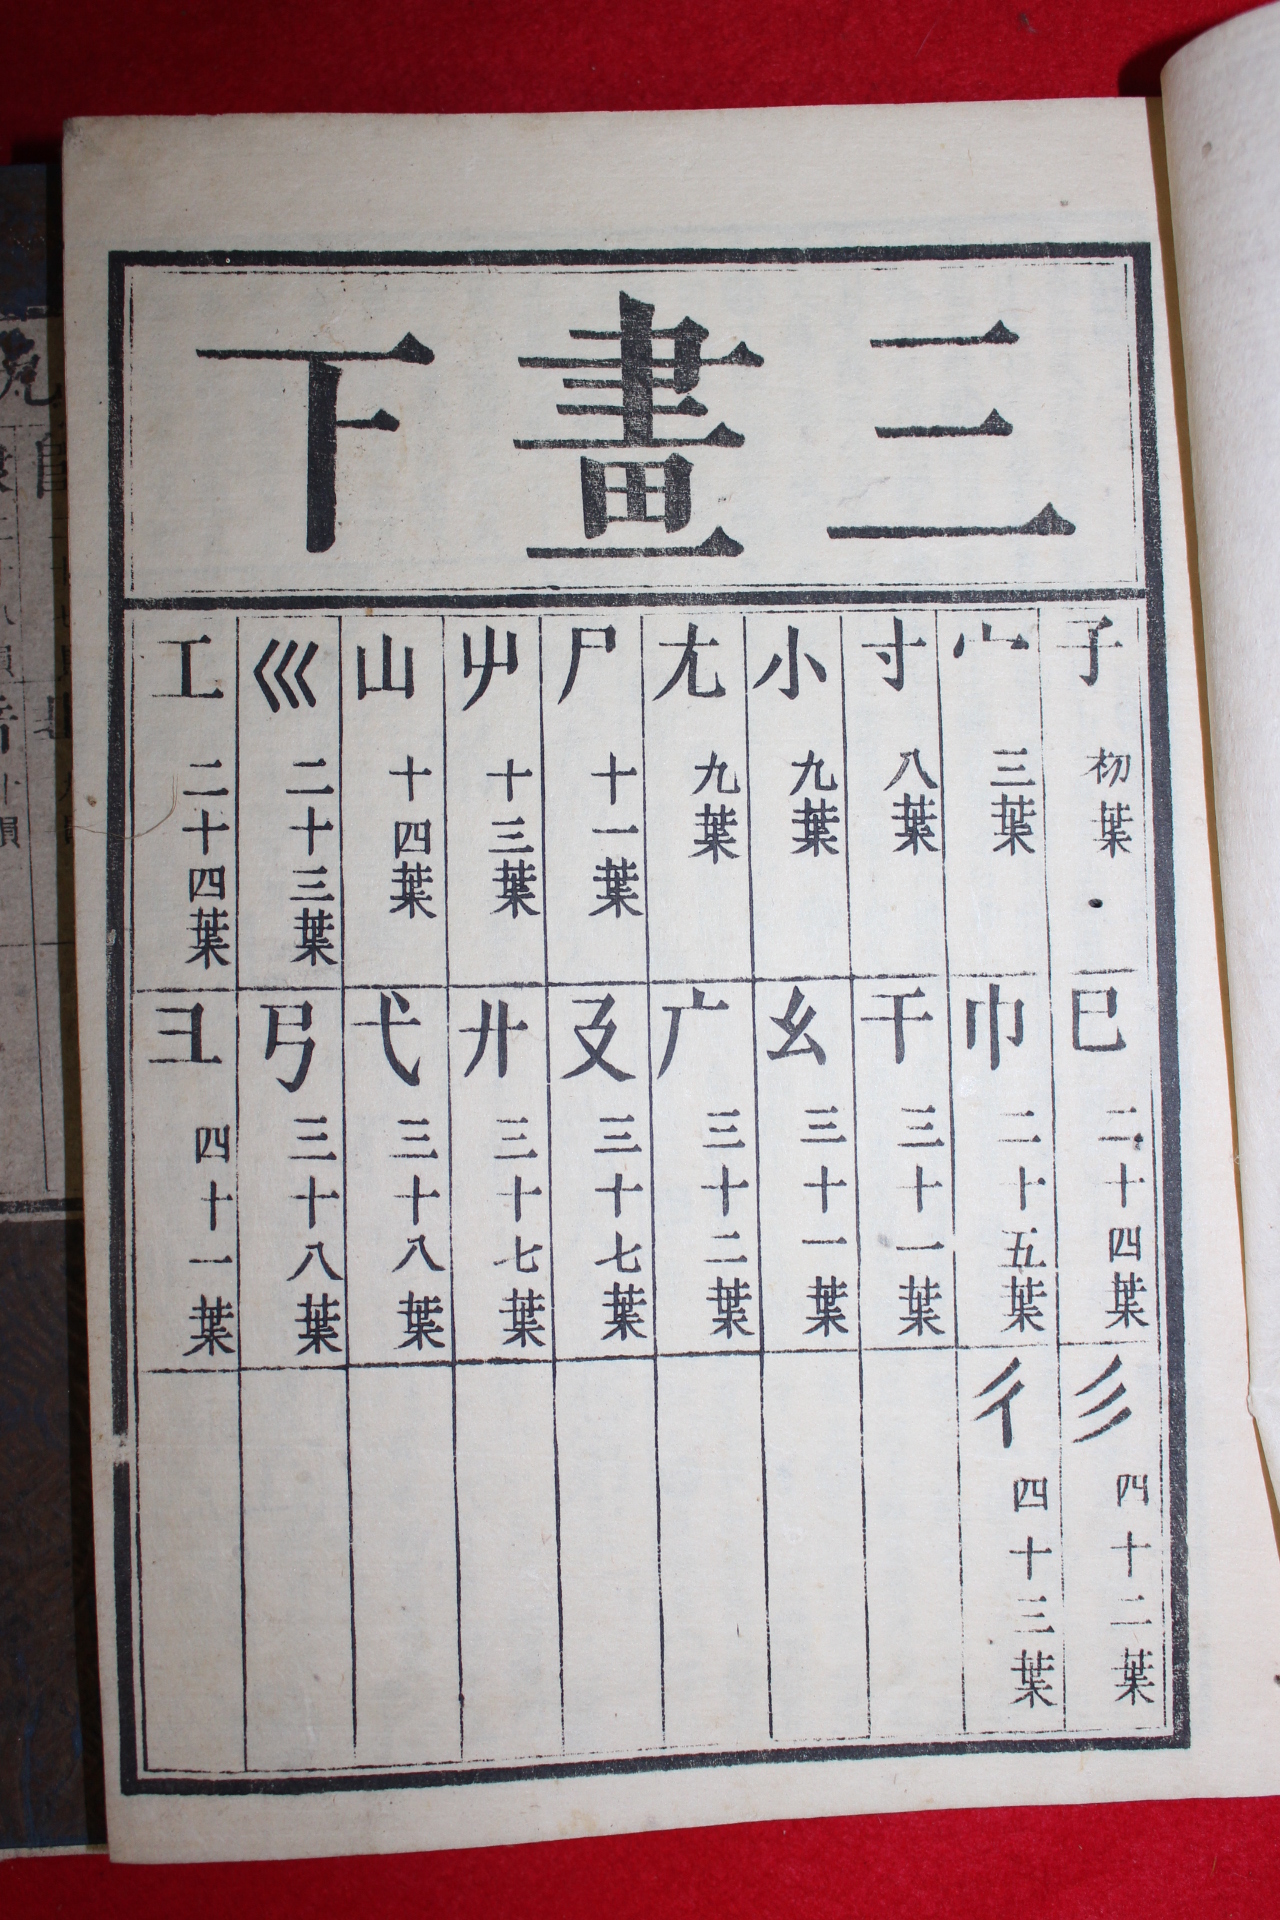 三畫下
子 初葉
宀 三葉
寸 八葉
小 九葉
尢 九葉
尸 十一葉
屮 十三葉
山 十四葉
巛 二十三葉
工 二十四葉
已 二十四葉
巾 二十五葉
干 三十一葉
幺 三十一葉
广 三十二葉
廴 三十七葉
廾 三十七葉
弋 三十八葉
弓 三十八葉
彐 四十一葉
彡 四十二葉
彳 四十三葉